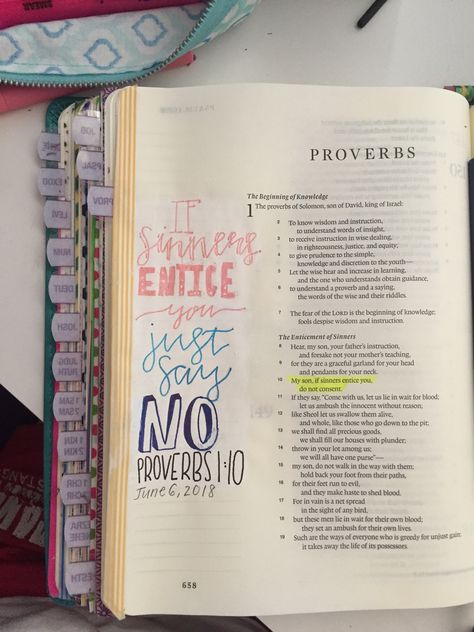 SMEAR
PROVERBS
If
sinners
ENTICE
you
just
say
NO
PROVERBS 1:10
June 6, 2018
The Beginning of Knowledge
1 The proverbs of Solomon, son of David, king of Israel:
2 To know wisdom and instruction,
to understand words of insight,
3 to receive instruction in wise dealing,
in righteousness, justice, and equity;
4 to give prudence to the simple,
knowledge and discretion to the youth—
5 Let the wise hear and increase in learning,
and the one who understands obtain guidance,
6 to understand a proverb and a saying,
the words of the wise and their riddles.
7 The fear of the LORD is the beginning of knowledge;
fools despise wisdom and instruction.
The Enticement of Sinners
8 Hear, my son, your father's instruction,
and forsake not your mother's teaching,
9 for they are a graceful garland for your head
and pendants for your neck.
10 My son, if sinners entice you,
do not consent.
11 If they say, "Come with us, let us lie in wait for blood;
let us ambush the innocent without reason;
12 like Sheol let us swallow them alive,
and whole, like those who go down to the pit;
13 we shall find all precious goods,
we shall fill our houses with plunder;
14 throw in your lot among us;
we will all have one purse"—
15 my son, do not walk in the way with them;
hold back your foot from their paths,
16 for their feet run to evil,
and they make haste to shed blood.
17 For in vain is a net spread
in the sight of any bird,
18 but these men lie in wait for their own blood;
they set an ambush for their own lives.
19 Such are the ways of everyone who is greedy for unjust gain;
it takes away the life of its possessors.
658
JOB
PSAL
PROV
EXOD
LEVI
NUM
DEUT
JOSH
JUDG
RUTH
1 SAM
2 SAM
1 KIN
2 KIN
1 CHR
2 CHR
EZRA
NEHE
ESTH